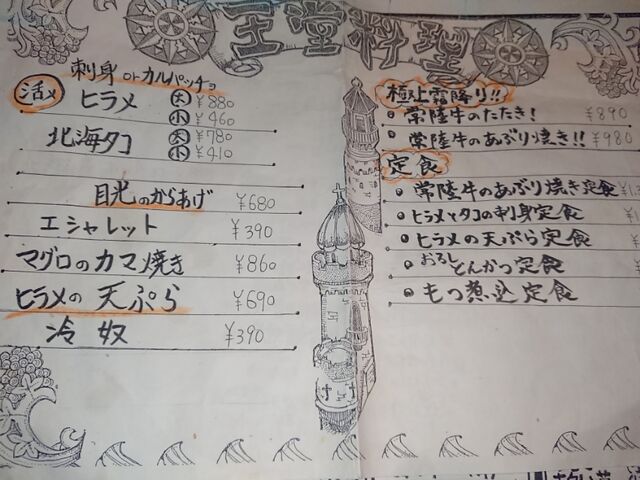 王堂料理
刺身 or カルパッチョ
活〆 ヒラメ 大 ¥880
小 ¥460
北海タコ 大 ¥780
小 ¥410
目光のからあげ ¥680
エシャレット ¥390
マグロのカマ焼き ¥860
ヒラメの天ぷら ¥690
冷奴 ¥390
極上霜降り!!
常陸牛のたたき! ¥890
常陸牛のあぶり焼き!! ¥980
定食
常陸牛のあぶり焼き定食 ¥1
ヒラメとタコの刺身定食 ¥
ヒラメの天ぷら定食 ¥
おろしとんかつ定食 ¥
もつ煮込定食 ¥